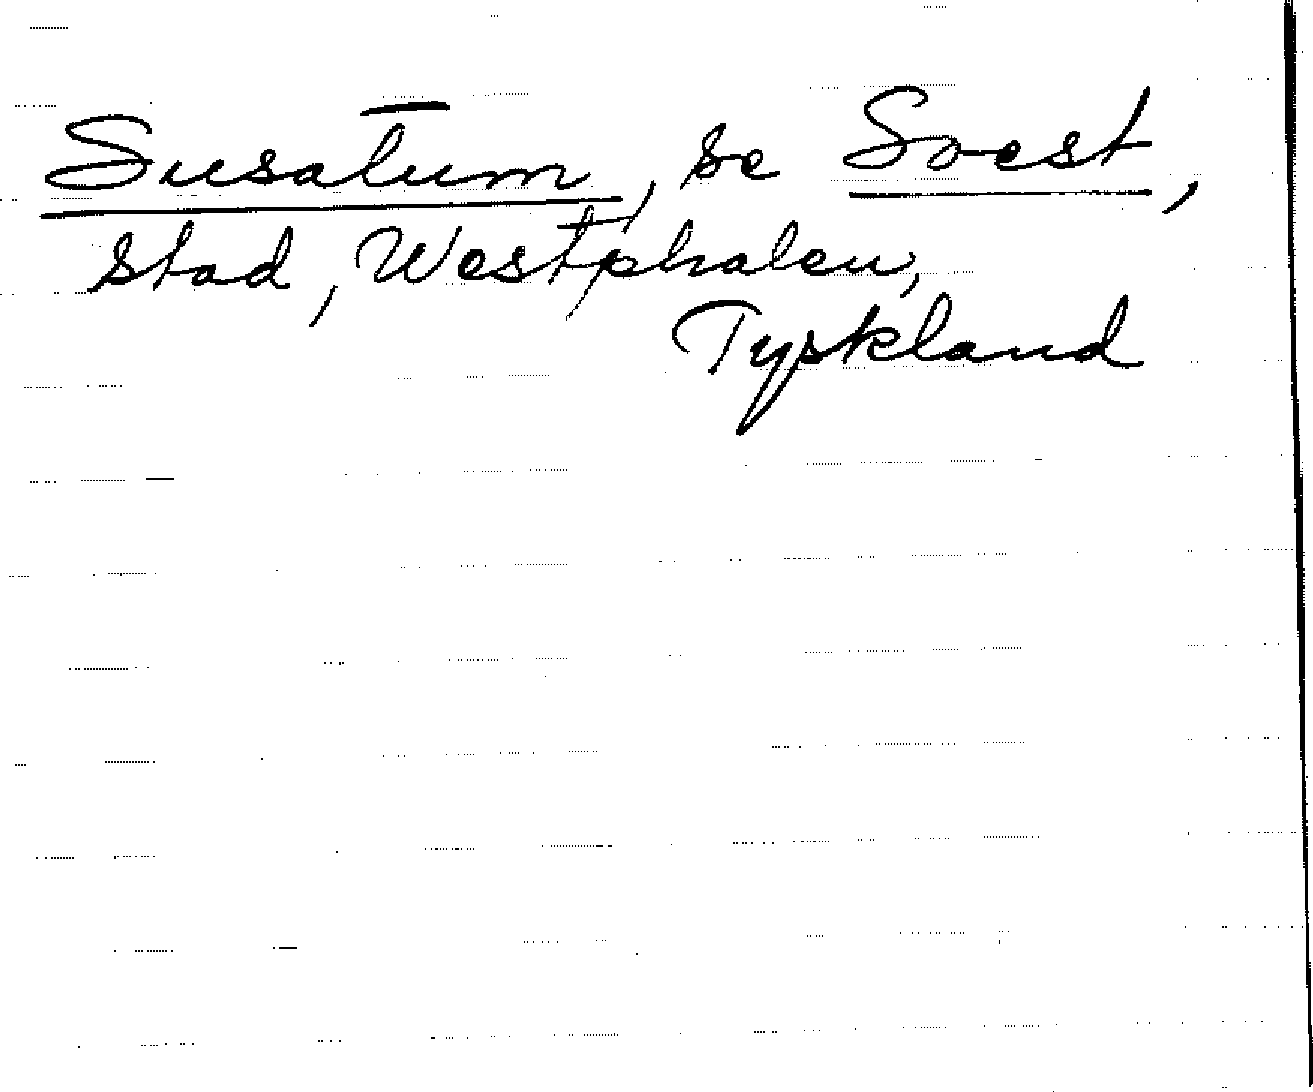 Susatum, se Soest,
stad, Westphalen,
Tyskland